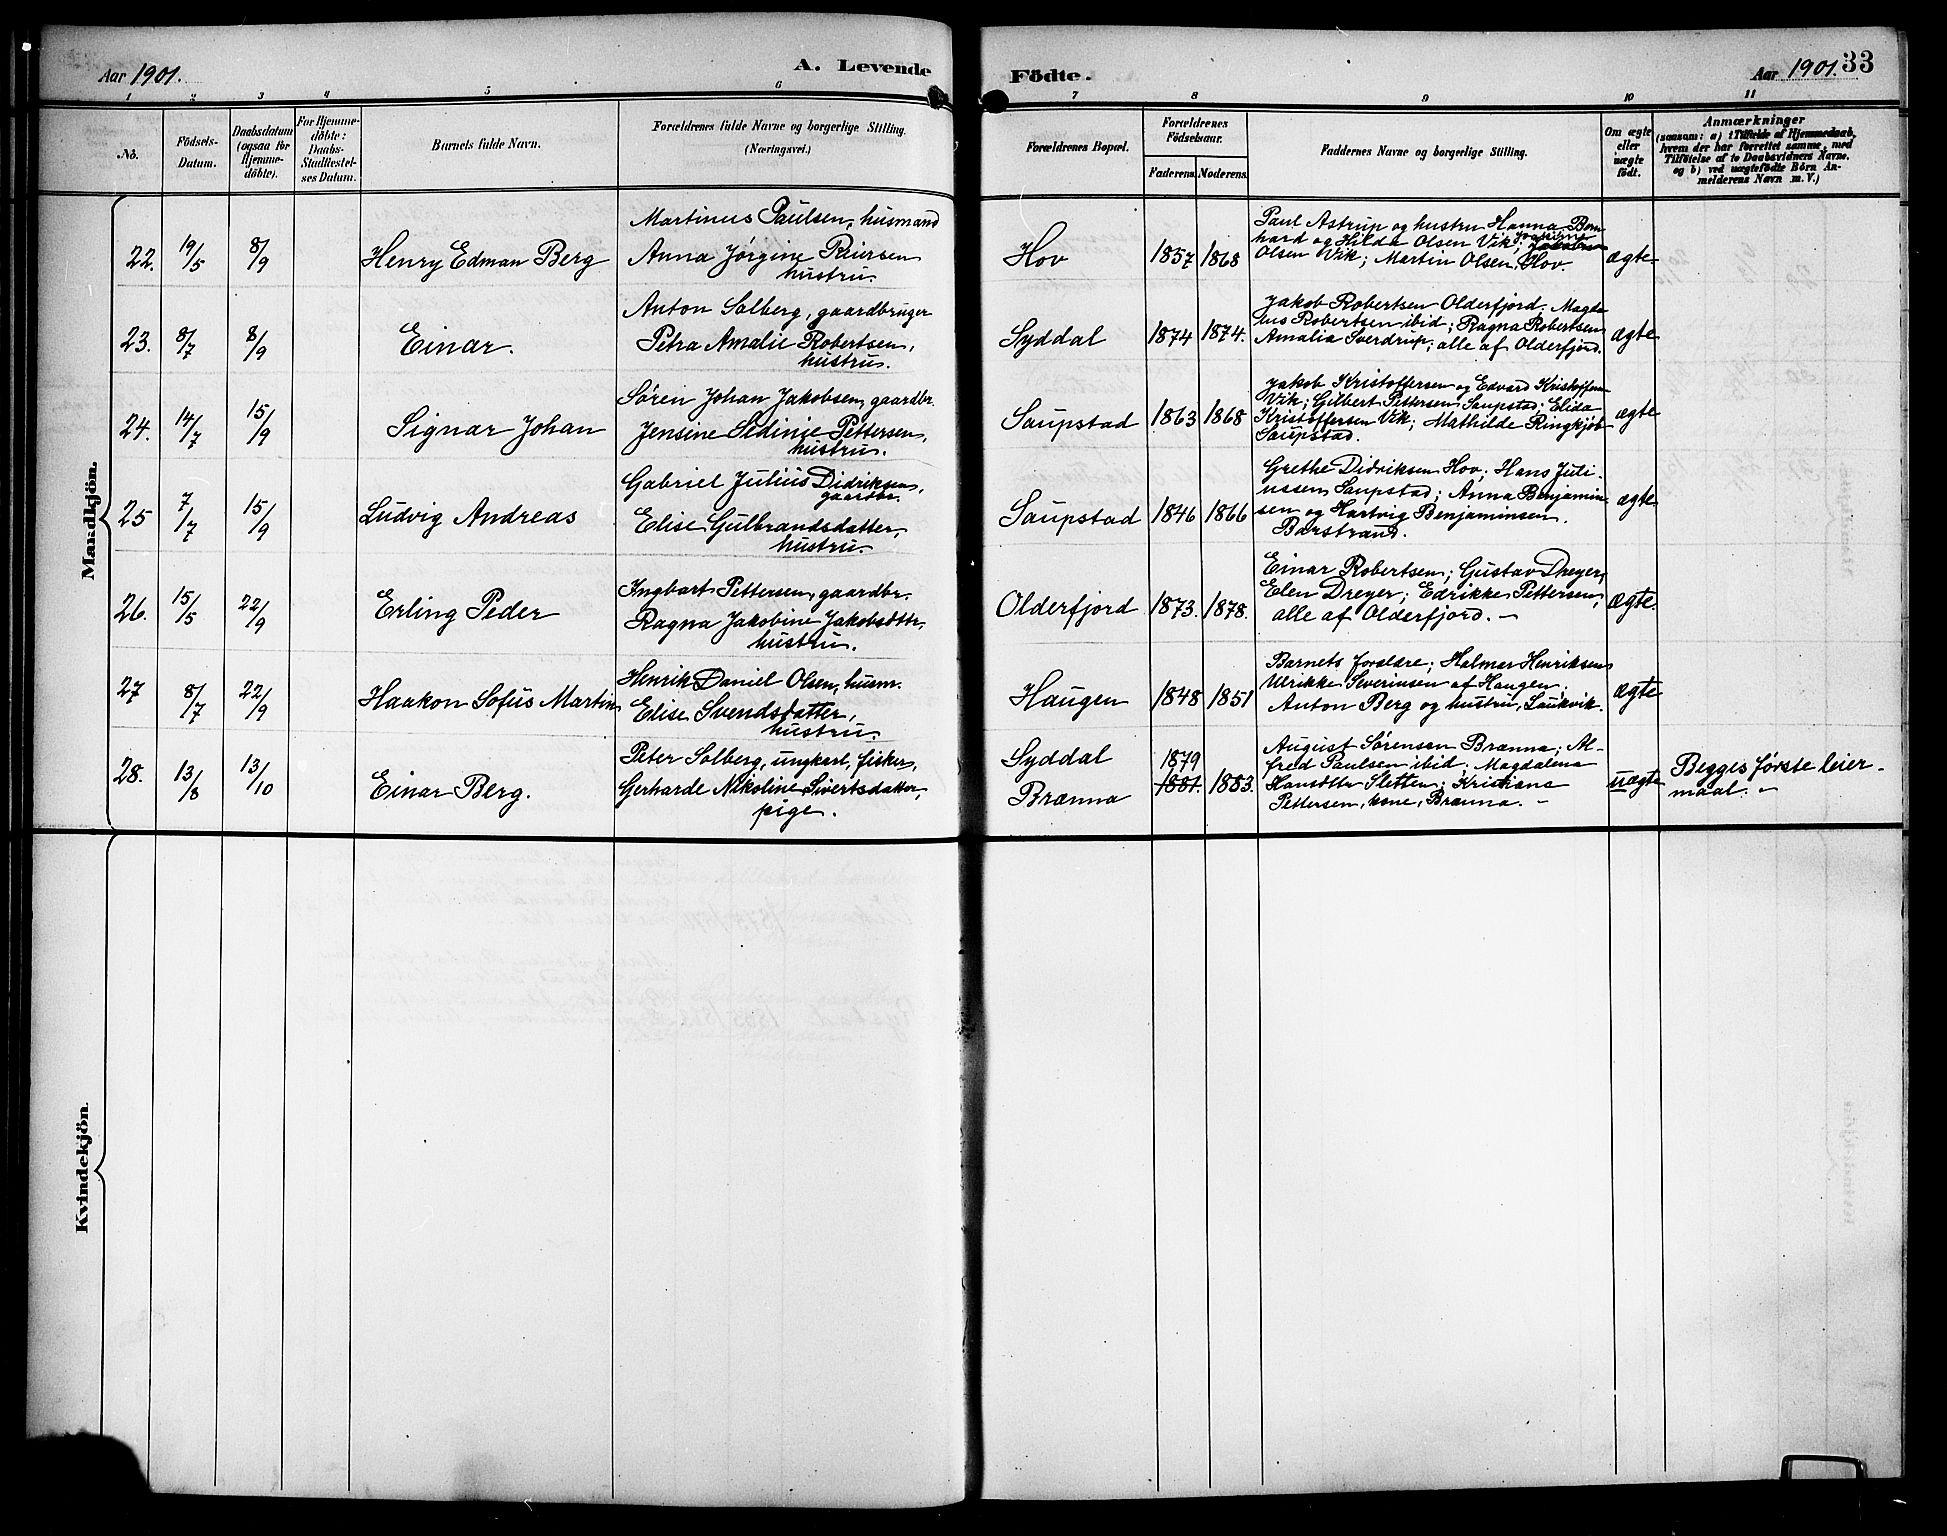 Aar 1901.
A. Levende
Födte.
Aar 1901. 33
1 2 3 4 5 6 7 8 9 10 11
No.
Födsels-
Datum.
Daabsdatum
(ogsaa for
Hjemme-
döbte).
For Hjemme-
döbte:
Daabs-
Stadfæstel-
ses Datum.
Barnets fulde Navn.
Forældrenes fulde Navne og borgerlige Stilling.
(Næringsvei.)
Forældrenes Bopæl.
Forældrenes
Födselsaar.
Faderens. Moderens.
Faddernes Navne og borgerlige Stilling.
Om ægte
eller
uægte
födt.
Anmærkninger
(saasom: a) i Tilfælde af Hjemmedaab,
hvem der har forrettet samme, med
Tilföielse af to Daabsvidners Navne.
og b) ved uægtefödte Börn An-
melderens Navn m. V.)
Mandkjön.
22. 19/5 8/9 Henry Edman Berg
Martinus Paulsen, husmand
Anna Jørgine Reiersen
hustru.
Hov 1857 1868
Paul Astrup og hustru Hanna Bern
hard og Hilda Olsen Vik;
Olsen Vik; Martin Olsen, Hov.
ægte
23. 8/7 8/9 Einar.
Anton Solberg, gaardbruger
Petra Amalie Robertsen,
hustru.
Syddal 1874 1874.
Jakob Robertsen Olderfjord; Magda
Robertsen ibid; Ragna Robertsen
Amalia Sverdrup; alle af Olderfjord.
ægte
24. 14/7 15/9 Signar Johan
Søren Johan Jakobsen, gaardbr.
Jensine Sedinie Pettersen,
hustru.
Saupstad 1863 1868
Jakob Kristoffersen og Edvard Kristoffersen
Vik; Gilbert Pettersen Saupstad; Elida
Kristoffersen Vik; Mathilde Ringkjøb
Saupstad.
ægte
25 7/7 15/9 Ludvig Andreas
Gabriel Julius Didriksen,
gaardbr.
Elise Gulbrandsdatter,
hustru.
Saupstad 1846 1866
Grethe Didriksen Hov; Hans Juli-
ussen Saupstad; Anna Benjamin
sen og Hartvig Benjaminsen.
Barstrand.
ægte
26. 15/5 22/9 Erling Peder
Ingbart Pettersen, gaardbr.
Ragna Jakobine Jakobsdttr,
hustru.
Olderfjord 1873. 1878.
Einar Robertsen; Gustav Dreyer;
Elen Dreyer; Edrikke Pettersen;
alle af Olderfjord. —
ægte.
27 8/7 22/9 Haakon Sofus Martin
Henrik Daniel Olsen, husm.
Elise Svendsdatter,
hustru.
Haugen 1848 1851
Barnets forældre; Halmar Henriksen
Ulrikke Severinsen af Haugen;
Anton Berg og hustru, Laukvik.
ægte
28. 13/8 13/10 Einar Berg.
Peter Solberg, ungkarl, fisker,
Gerharde Nikoline Sivertsdatter,
pige.
Syddal
Brænna
1879
1881. 1883.
August Sørensen Brænna; Al-
fred Paulsen ibid; Magdalena
Hansdtter Sletten; Kristiana
Pettersen, kone, Brænna. —
uægte
Begges første leier-
maal. —
Kvindekjön.